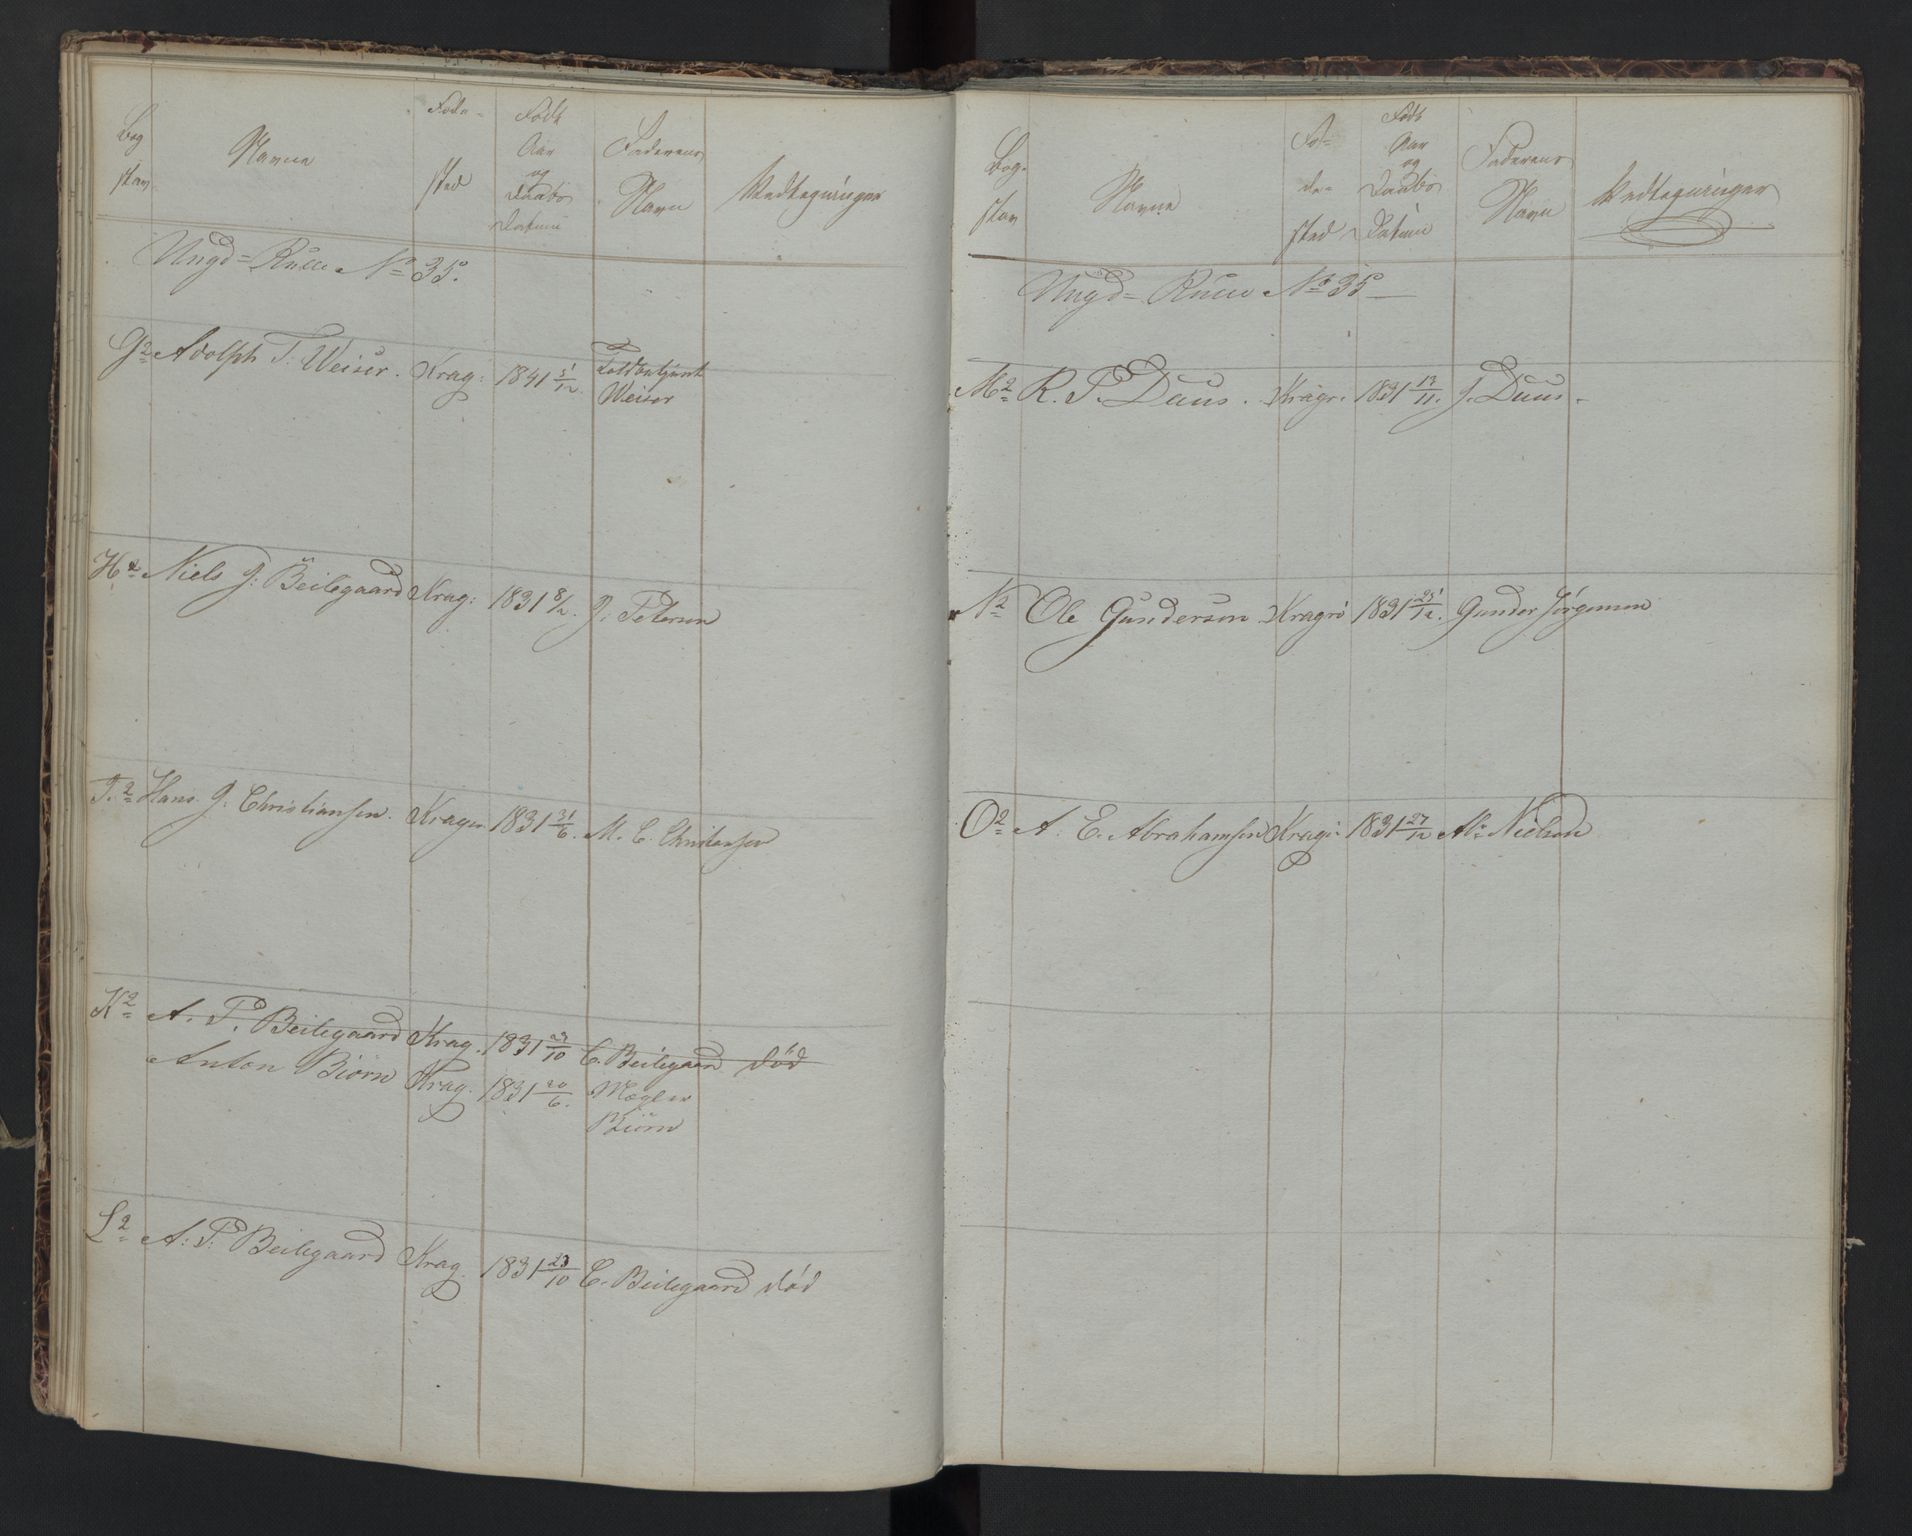 Bog
stav
Navne
Føde-
sted
Født
Aar
og
Daabs
Datum
Faderens
Navn
Vedtegninger
Ungd= Rulle No 35.
G2 Adolph T. Weiser. Krag: 1841 5/12. Toldbetjent
Weiser
H2 Niels J: Beilegaard Krag: 1831 8/2. J: Petersen
I.2 Hans J: Christiansen. Kragr. 1831 21/6. M. C. Christiansen
K2 A. P. Beilegaard Krag. 1831 23/10 C. Beilegaard död
Anton Biörn Krag. 1831 20/6. Mægler
Biörn
L2 A: P: Beilegaard Krag. 1831 23/10 C. Beilegaard död
Bog-
stav
Navne
Fö-
de-
sted
Født
Aar
og
Daabs
Datum
Faderens
Navn
Vedtegninger
Ungd= Rulle No 35
M2 R. P. Duus. Kragr. 1831 13/11. J. Duus.
N2 Ole Gundersen Kragrö 1831 25/12. Gunder Jörgensen
O2 A. E. Abrahamsen Krag: 1831 27/12 Ab: Nielsen